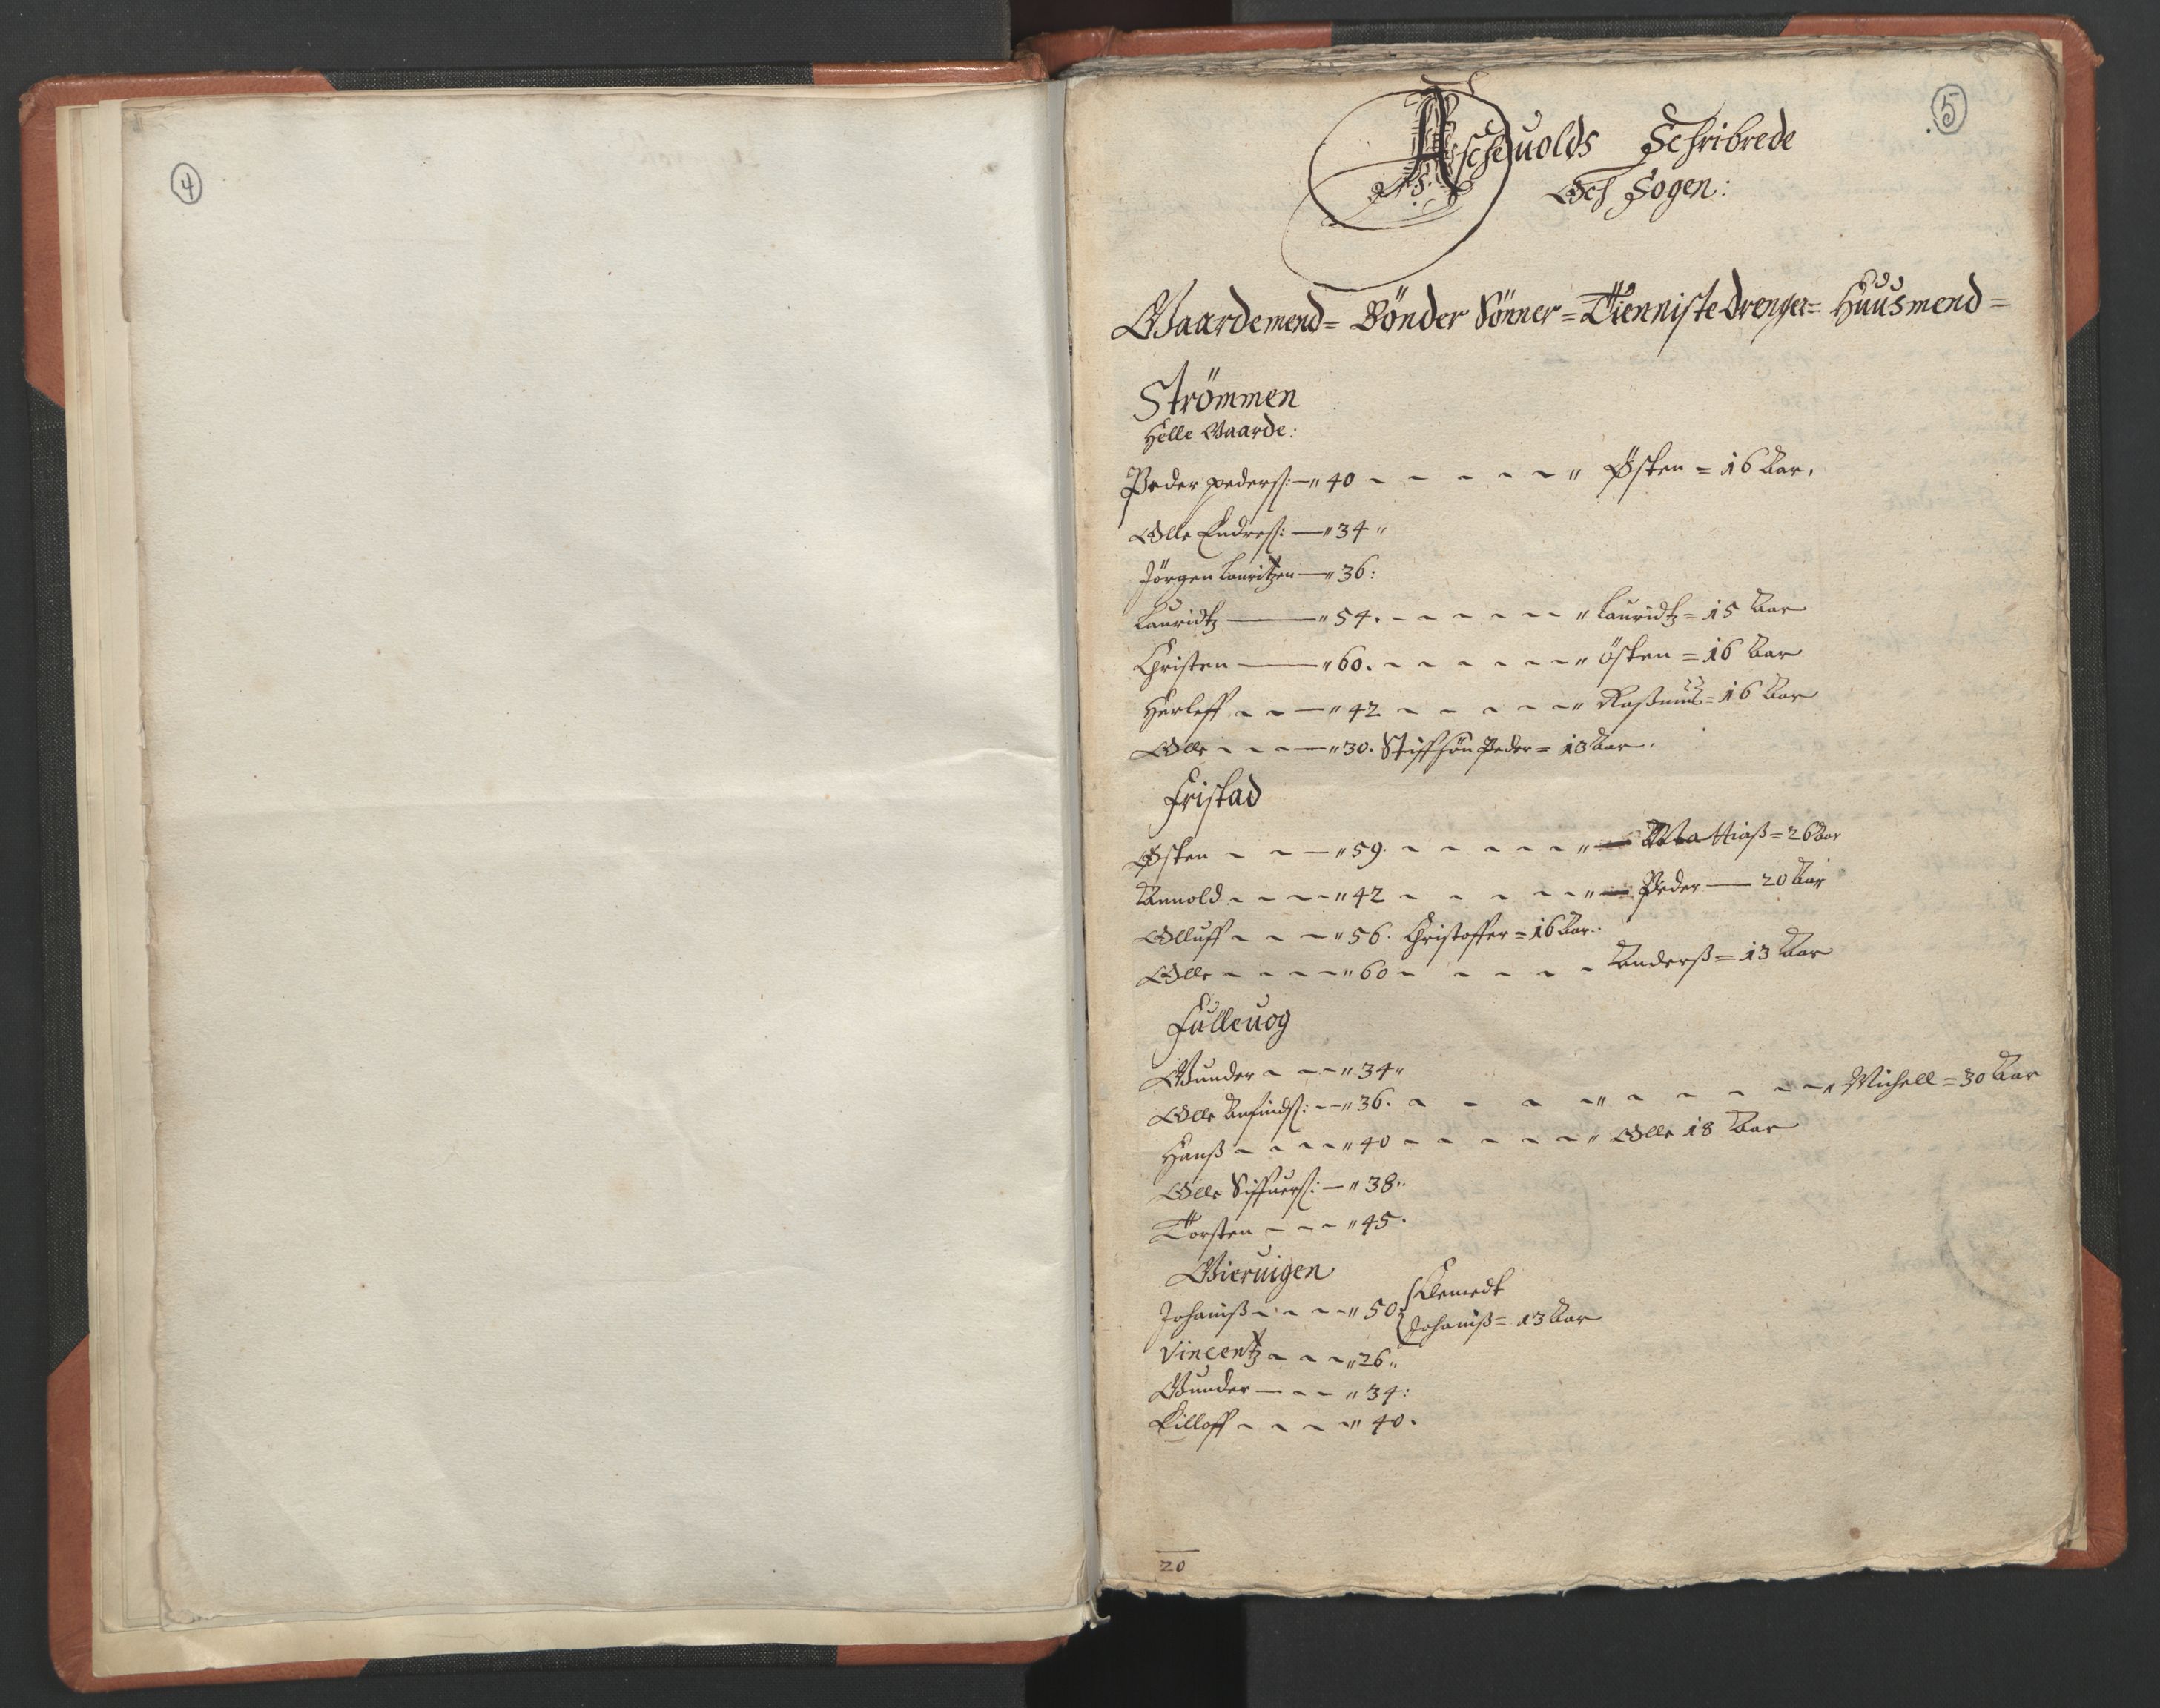 4
5
Ascheuolds Schribrede
Och Sogen:
Gaardemend= Bönder Sönner= Tienniste drenger= Huusmend=
Strömmen
Helle Gaarde:
Peder peders: — 40 - - - - - " Østen = 16 Aar.
Olle Endres: — "34 "
Jörgen Lauritzen — "36:
Lauridtz — "54. - - - - - " Lauridtz = 15 Aar
Christen — "60. - - - - - " östen = 16 Aar
Herleff - - — "42 - - - - - " Rasmus = 16 Aar
Olle - - - — "30. Stiffsön Peder = 13 Aar.
Fristad
Østen - - — "59. - - - - - " — Mattiaß = 26 Aar
Annold - - - - "42 - - - - - " — Peder — 20 Aar
Olluff - - - "56. Christoffer = 16 Aar.
Olle - - - - "60 - - - - - Anderß = 13 Aar
Fulleuog
Gunder - - - "34 "
Olle Anfinds: - - "36. - - - - " - - - - - " Michell = 30 Aar
Hanß - - - - "40 - - - - - " Olle 18 Aar
Olle Siffuers: — "38.
Torsten - - - "45.
Gieruigen
Johaniß - - - - "50. { Clemedt
Johaniß = 13 Aar
Vincentz - - - "26 "
Gunder — - - "34:
Killoff - - - - "40.
20